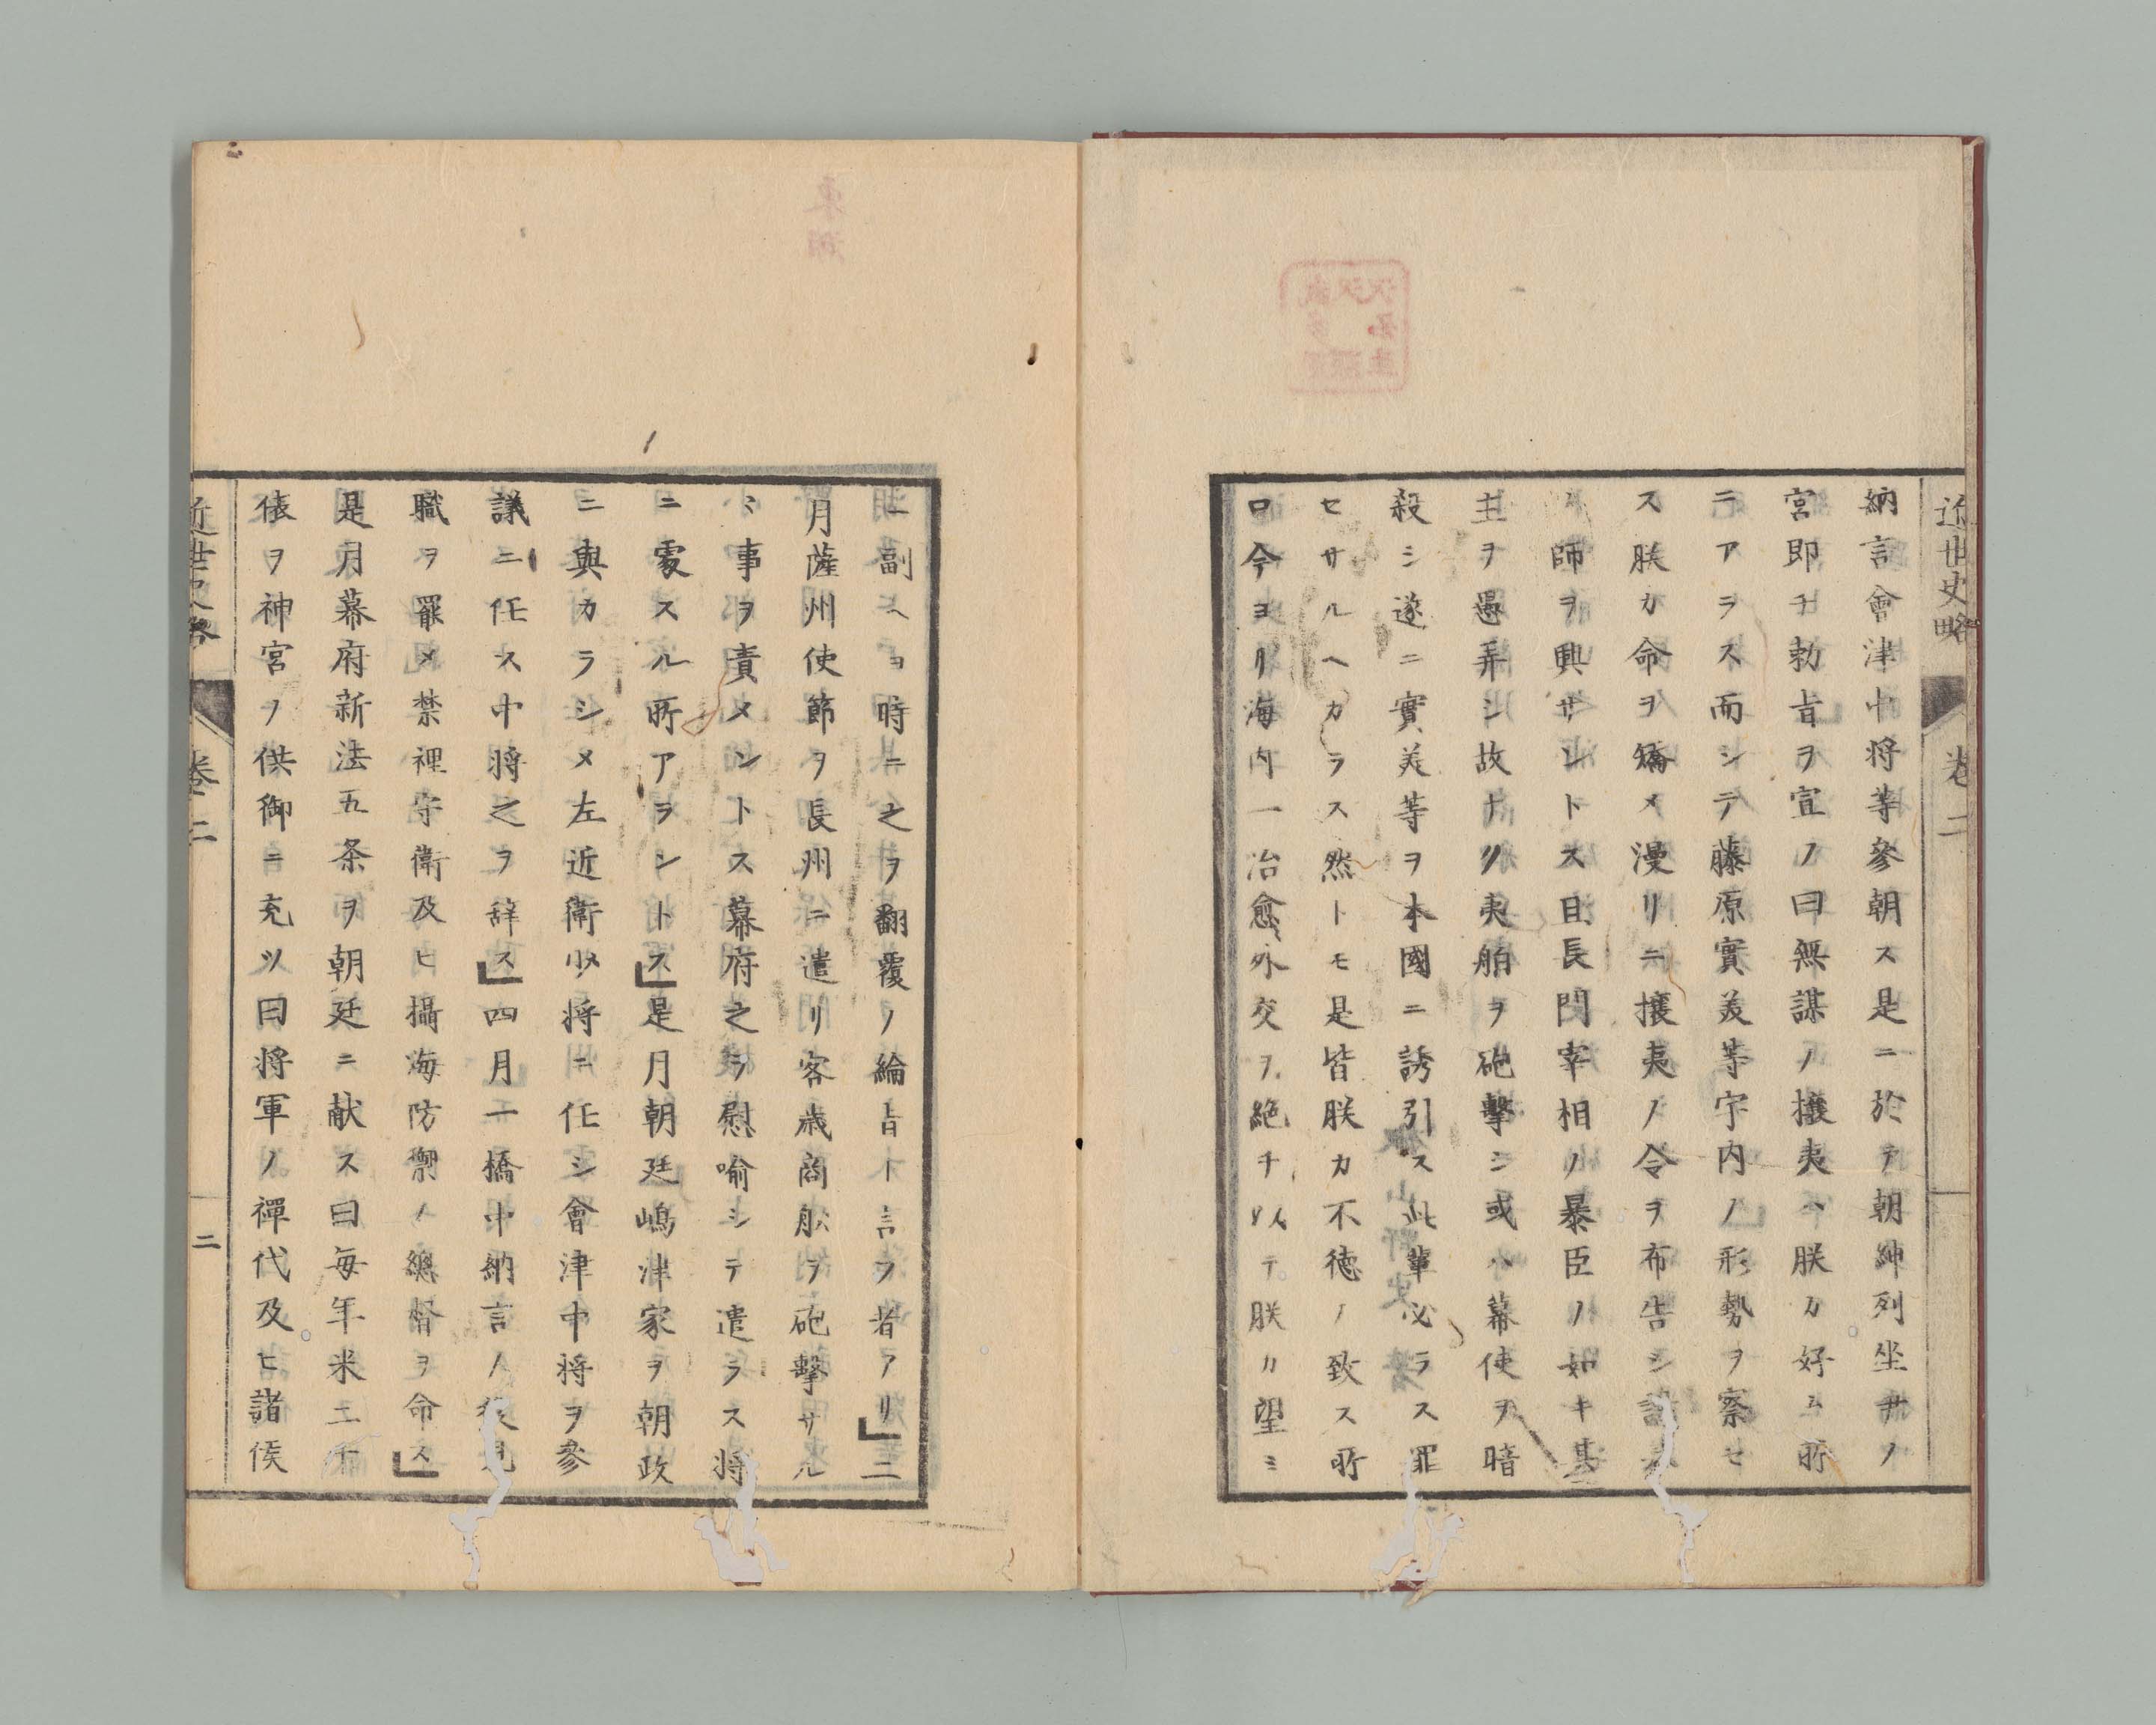 近世史略 卷二
納言會津中将等參朝ス是ニ於テ朝紳列坐尹ノ
宮即チ勅旨ヲ宣ノ曰無謀ノ攘夷ハ朕カ好ム所
ニアラス而シテ藤原實美等宇内ノ形勢ヲ察セ
ス朕カ命ヲ矯メ漫リニ攘夷ノ令ヲ布告シ
師ヲ興サントス且長門宰相ノ暴臣ノ如キ其
主ヲ愚弄シ故ナク夷舶ヲ砲擊シ或ハ幕使ヲ暗
殺シ遂ニ實美等ヲ本國ニ誘引ス此輩必ラス罪
セサルヘカラス然トモ是皆朕カ不徳ノ致ス所
口今ヨリ海内一治愈外交ヲ絶チ以テ朕カ望ミ
ニ副ヘヨ時ニ之ヲ翻覆ノ綸旨ト言フ者アリ」二
月薩州使節ヲ長州ニ遣リ客歳商舩ヲ砲擊サル
ヽ事ヲ責メントス幕府之ヲ慰喻シテ遣ラス将
ニ處スル所アラントス」是月朝廷嶋津家ヲ朝政
ニ與カラシメ左近衛少将ニ任シ會津中将ヲ參
議ニ任ス中将之ヲ辞ス」四月一橋中納言ノ後見
職ヲ罷メ禁裡守衛及ヒ攝海防禦ノ總督ヲ命ス」
是月幕府新法五条ヲ朝廷ニ献ス曰毎年米二千
俵ヲ神宮ノ供御ニ充ツ曰将軍ノ禪代及ヒ諸侯
近世史略 卷二 二